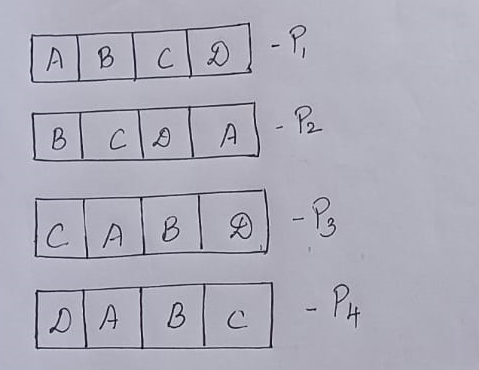 A B C D - P1
B C D A - P2
C A B D - P3
D A B C - P4